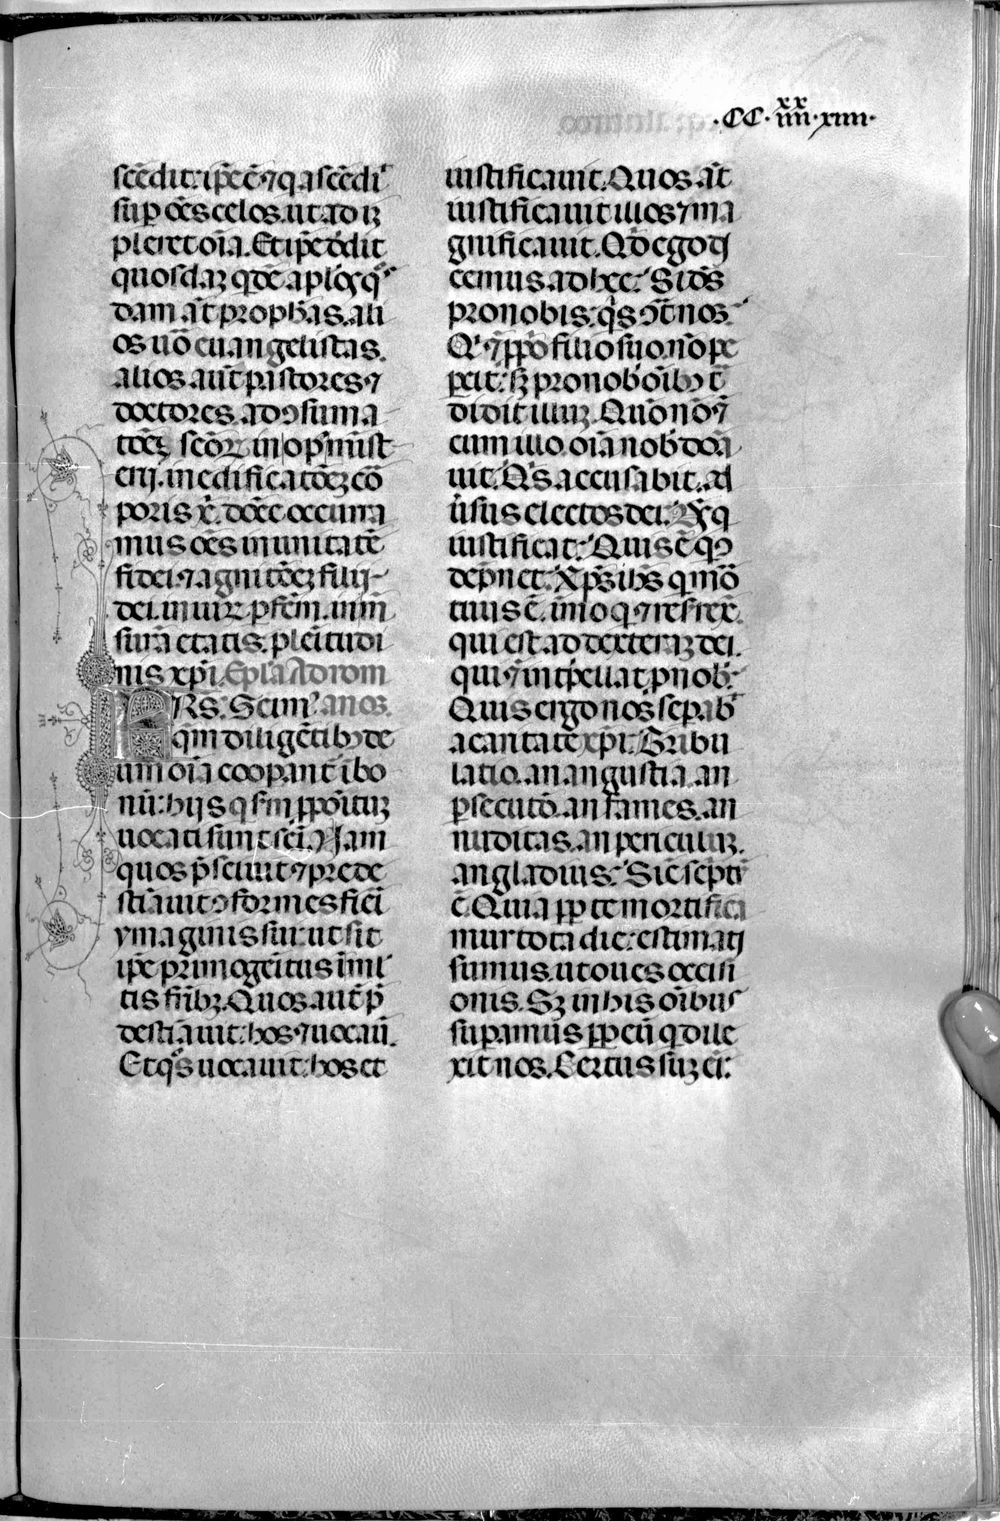 .CC.
xx
iiii.xiiii.
scẽdit: ip̃e ẽ ⁊ q̃ ascẽdit
sup̃ oẽs celos. ut ad iꝫ
pleret oĩa. Et ip̃e dẽdit
quosdaꝫ qd̃e apl'os q̃s
dam aũt proph̃as. ali
os uõ euangelistas.
alios aũt pastores ⁊
doctores. ad ꝯsuma
tõeꝫ scõꝝ in op' minist
erij. in edificatõeꝫ cõ
poris x̃. donec occurra
mus oẽs in unitatẽ
fidei. ⁊ agnitõeꝫ filij
dei. in uiꝝ p̃fc̃m. in m̃
surã etatis. plẽitudi
nis xp̃i. Ep̃la Ad rom
FRS. Scim' anos.
qm̃ diligẽtibꝫ de
um oĩa coop̃ant̃ ĩ bo
nũ: hijs q̃ s̃m p̃põituꝫ
uocati sunt sc̃i. Nam
quos p̃sciuit ⁊ prede
stĩauit ꝯformes fieĩ
ymaginis sui: ut sit
ip̃e primogẽitus ĩ ml'
tis frĩbꝫ. Quos aũt p̃
destĩauit: hos ⁊ uocaũ.
Et q̃s uocauit: hos et
iustificauit. Quos aũt
iustificauit illos ⁊ ma
gnificauit. Qd̃ ego di
cemus ad hec: Si dẽs
pro nobis: q̃s ꝯt̃ nos:
Q' ⁊ p̃prõ filio suo nõ pe
p̃cit: sꝫ pro nob' oĩbꝫ t̃
didit illuꝫ. Quõ nõ ⁊
cum illo oĩa nob' donã
uit. Q's accusabit. ad
ũsus electos dei: Ds̃ q̃
iustificat: Quis ẽ q' ꝯ
dep̃net: Xp̃s ih̃s q̃ mõ
tuus ẽ. imõ q̃ ⁊ resrex̃.
qui est ad dexteraꝫ dei.
qui ⁊ int̃pellat p̃ nob'.
Quis ergo nos sep̃ab'
a caritatẽ xp̃i: Tribu
latio. an angustia. an
p̃secutõ. an fames. an
nuditas. an periculuꝫ.
an gladius: Sic̃ scp̃t'
ẽ. Quia p̃p te mortifica
mur tota die: estimati
sumus. ut oues occisi
onis. Sꝫ in his oĩbus
sup̃amus p̃p eũ q̃ dile
xit nos. Certus suꝫ eĩ: